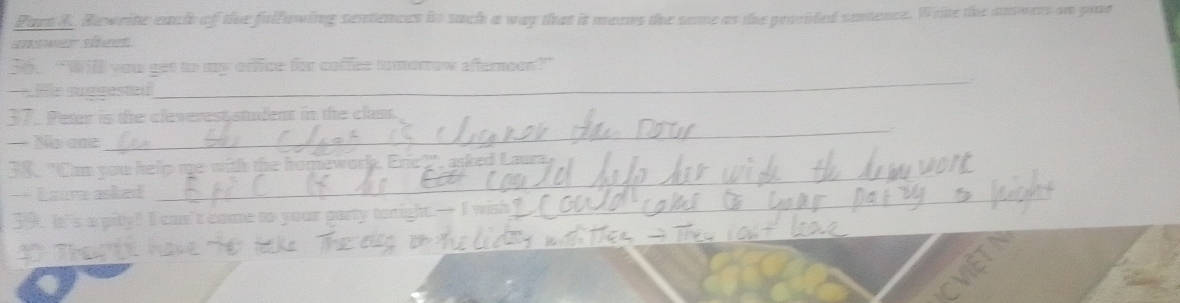 Part 4. Rewrite each of the following sentences in such a way that it means the same as the provided sentence. Write the answers on your
answer sheet.
36. "Will you get to my office for coffee tomorrow afternoon?"
→ He suggested
37. Peter is the cleverest student in the class.
→ No one in the class is cleverer than
38. "Can you help me with the homework, Eric?", asked Laura.
→ Laura asked Eric if he could help her with the homework
39. It's a pity! I can't come to your party tonight. → I wish I could come to your party to night
have to take the dog on the with → They can't leave
VIỆT N